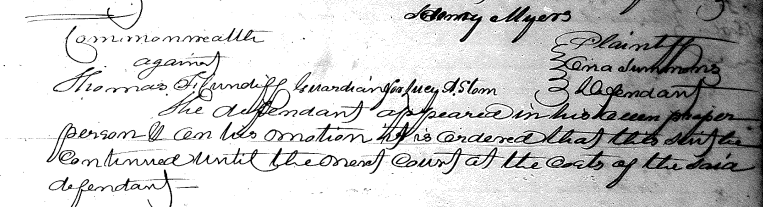 Henry Myers
Commonwealth Plaintiff
against on a Summons
Thomas F Cundiff Guardian for Lucy A. Slom Defendant
The defendant appeared in his own proper
person & on his motion it is ordered that this suit be
Continued until the next Court at the Costs of the said
defendant